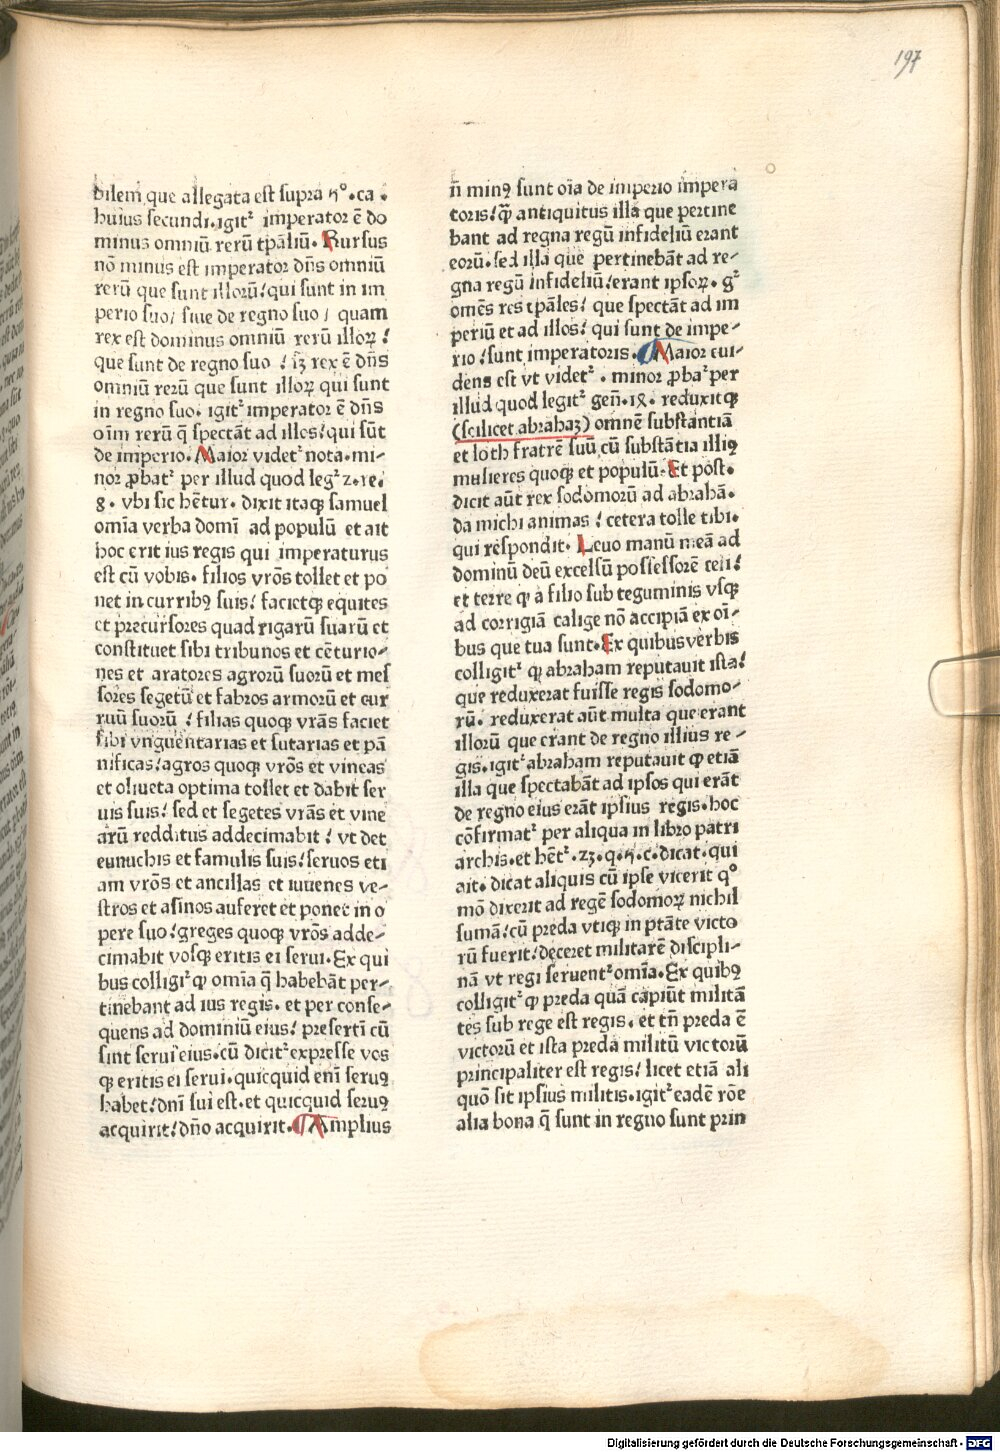 197
bilem que allegata est supra 5°. ca.
huius secundi. igit᷑ imperator ē do
minus omniū rerū tp̄aliū. Rursus
nō minus est imperator dn̄s omniū
rerū que sunt illorū / qui sunt in im
perio suo / siue de regno suo / quam
rex est dominus omniū rerū illoꝝ /
que sunt de regno suo / sꝫ rex ē dn̄s
omniū rerū que sunt illoꝝ qui sunt
in regno suo. igit᷑ imperator ē dn̄s
oīm rerū q̄ spectāt ad illos / qui sūt
de imperio. Maior videt᷑ nota. mi-
nor ꝓbat᷑ per illud quod leg᷑ 2. re.
8. vbi sic hētur. dixit itaqꝫ samuel
omīa verba domī ad populū et ait
hoc erit ius regis qui imperaturus
est cū vobis. filios vr̄os tollet et po
net in curribꝰ suis / facietqꝫ equites
et precursores quadrigarū suarū et
constituet sibi tribunos et cēturio-
nes et aratores agrorū suorū et mes
sores segetū et fabros armorū et cur
ruū suorū / filias quoqꝫ vr̄as faciet
sibi vnguentarias et futarias et pā
nificas / agros quoqꝫ vr̄os et vineas
et oliueta optima tollet et dabit ser
uis suis / sed et segetes vr̄as et vine
arū redditus addecimabit / vt det
eunuchis et famulis suis / seruos eti
am vr̄os et ancillas et iuuenes ve-
stros et asinos auferet et ponet in o
pere suo / greges quoqꝫ vr̄os adde-
cimabit vosqꝫ eritis ei serui. Ex qui
bus colligit᷑ ꝙ omīa q̄ habebāt per-
tinebant ad ius regis. et per conse-
quens ad dominiū eius / presertī cū
sint serui eius. cū dicit᷑ expresse vos
qꝫ eritis ei serui. quicquid enī seruꝰ
habet / dn̄i sui est. et quicquid seruꝰ
acquirit / dn̄o acquirit. Amplius
n̄ minꝰ sunt oīa de imperio impera
toris / q̄ꝫ antiquitus illa que pertine
bant ad regna regū infideliū erant
eorū. sed illa que pertinebāt ad re-
gna regū infideliū / erant ipsoꝝ. g᷑
omēs res tp̄ales / que spectāt ad im
periū et ad illos / qui sunt de impe-
rio / sunt imperatoris. Maior eui-
dens est vt videt᷑. minor ꝓbat᷑ per
illud quod legit᷑ gen̄. 14. reduxitqꝫ
(scilicet abrahaꝫ) omnē substantiā
et loth fratrē suū cū substātia illiꝰ
mulieres quoqꝫ et populū. Et post.
dicit aūt rex sodomorū ad abrahā.
da michi animas / cetera tolle tibi.
qui respondit. Leuo manū meā ad
dominū deū excelsū possessorē celi /
et terre ꝙ a filo sub teguminis vsqꝫ
ad corrigiā calige nō accipiā ex oī-
bus que tua sunt. Ex quibus verbis
colligit᷑ ꝙ abraham reputauit ista /
que reduxerat fuisse regis sodomo-
rū. reduxerat aūt multa que erant
illorū que erant de regno illius re-
gis. igit᷑ abraham reputauit ꝙ etiā
illa que spectabāt ad ipsos qui erāt
de regno eius erāt ipsius regis. hoc
cōfirmat᷑ per aliqua in libro patri
archis. et hēt᷑. 23. q. 5. c. dicat. qui
ait. dicat aliquis cū ipse vicerit q°
mō dixerit ad regē sodomoꝝ nichil
sumā / cū preda vtiqꝫ in ptāte victo
rū fuerit / deceret militarē discipli-
nā vt regi seruent᷑ omīa. Ex quibꝰ
colligit᷑ ꝙ preda quā capiūt militā
tes sub rege est regis. et tn̄ preda ē
victorū et ista preda militū victorū
principaliter est regis / licet etiā ali
quō sit ipsius militis. igit᷑ eadē rōe
alia bona q̄ sunt in regno sunt prin
Digitalisierung gefördert durch die Deutsche Forschungsgemeinschaft - DFG